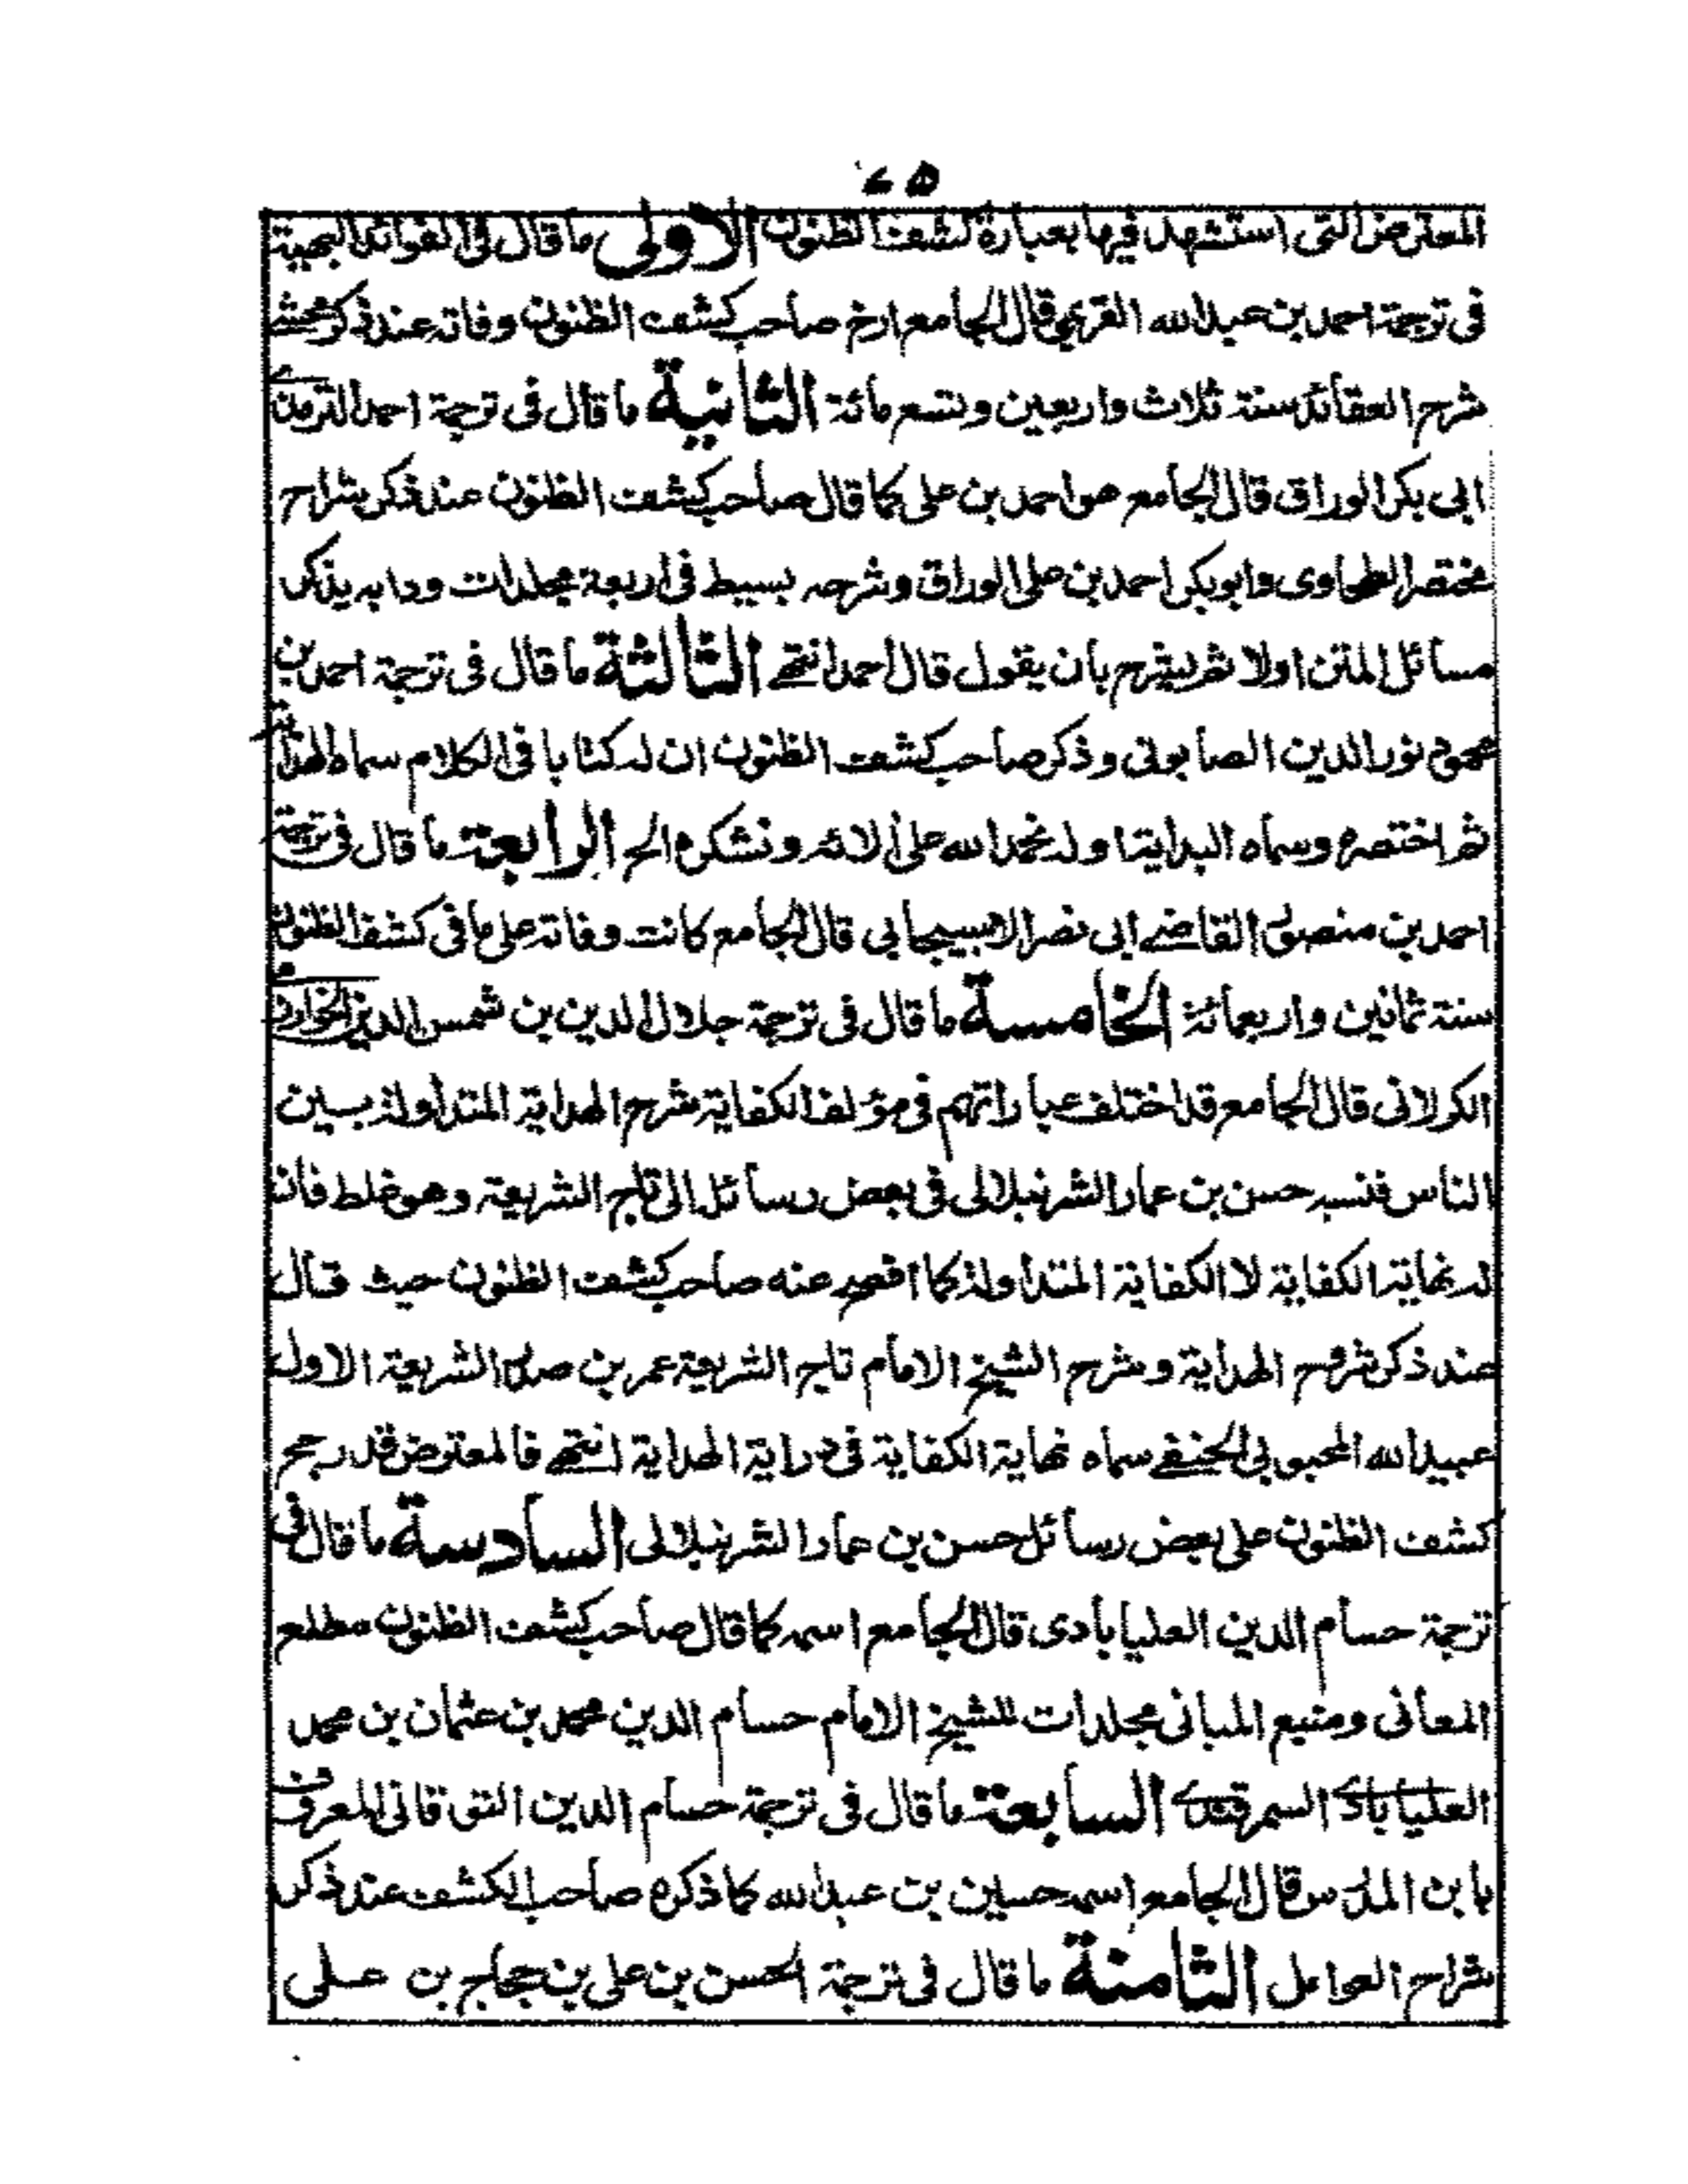 ٢٥
المعترض التى استشهد فيها بعبارة كشف الظنون الاولى ما قال فى الفوائد البهية
فى ترجمة احمد بن عبد الله القريمى قال الجامع ارخ صاحب كشف الظنون وفاته عند ذكر محشى
شرح العقائد سنة ثلاث واربعين وتسع مائة الثانية ما قال فى ترجمة احمد الترمذى
ابى بكر الوراق قال الجامع هو احمد بن على كما قال صاحب كشف الظنون عند ذكر شراح
مختصر الطحاوى وابو بكر احمد بن على الوراق وشرحه بسيط فى اربعة مجلدات ودابه يذكر
مسائل المتن اولا ثم ليشرح بان يقول قال احمد انتهى الثالثة ما قال فى ترجمة احمد بن
محمود نور الدين الصابونى وذكر صاحب كشف الظنون ان له كتابا فى الكلام سماه الهداية
ثم اختصره وسماه البداية اوله نحمد الله على آلائه ونشكره الخ الرابعة ما قال فى ترجمة
احمد بن منصور القاضى ابى نصر الاسبيجابى قال الجامع كانت وفاته على ما فى كشف الظنون
سنة ثمانين واربعمائة الخامسة ما قال فى ترجمة جلال الدين بن شمس الدين الخوارزمى
الكرلانى قال الجامع قد اختلف عباراتهم فى مؤلف الكفاية شرح الهداية المتداولة بين
الناس فنسبه حسن بن عمار الشرنبلالى فى بعض رسائله الى تاج الشريعة وهو غلط فان
له نهاية الكفاية لا الكفاية المتداولة كما افصح عنه صاحب كشف الظنون حيث قال
عند ذكر شروح الهداية وشرح الشيخ الامام تاج الشريعة عمر بن صدر الشريعة الاول
عبيد الله المحبوبى الحنفى سماه نهاية الكفاية فى دراية الهداية انتهى فالمعترض قد رجح
كشف الظنون على بعض رسائل حسن بن عمار الشرنبلالى السادسة ما قال فى
ترجمة حسام الدين العليابادى قال الجامع اسمه كما قال صاحب كشف الظنون مطلع
المعانى ومنبع المبانى مجلدات للشيخ الامام حسام الدين محمد بن عثمان بن محمد
العليابادى السمرقندى السابعة ما قال فى ترجمة حسام الدين التوقاتى المعروف
بابن المدرس قال الجامع اسمه حسين بن عبد الله كما ذكره صاحب الكشف عند ذكر
شراح العوامل الثامنة ما قال فى ترجمة الحسن بن على بن حجاج بن على